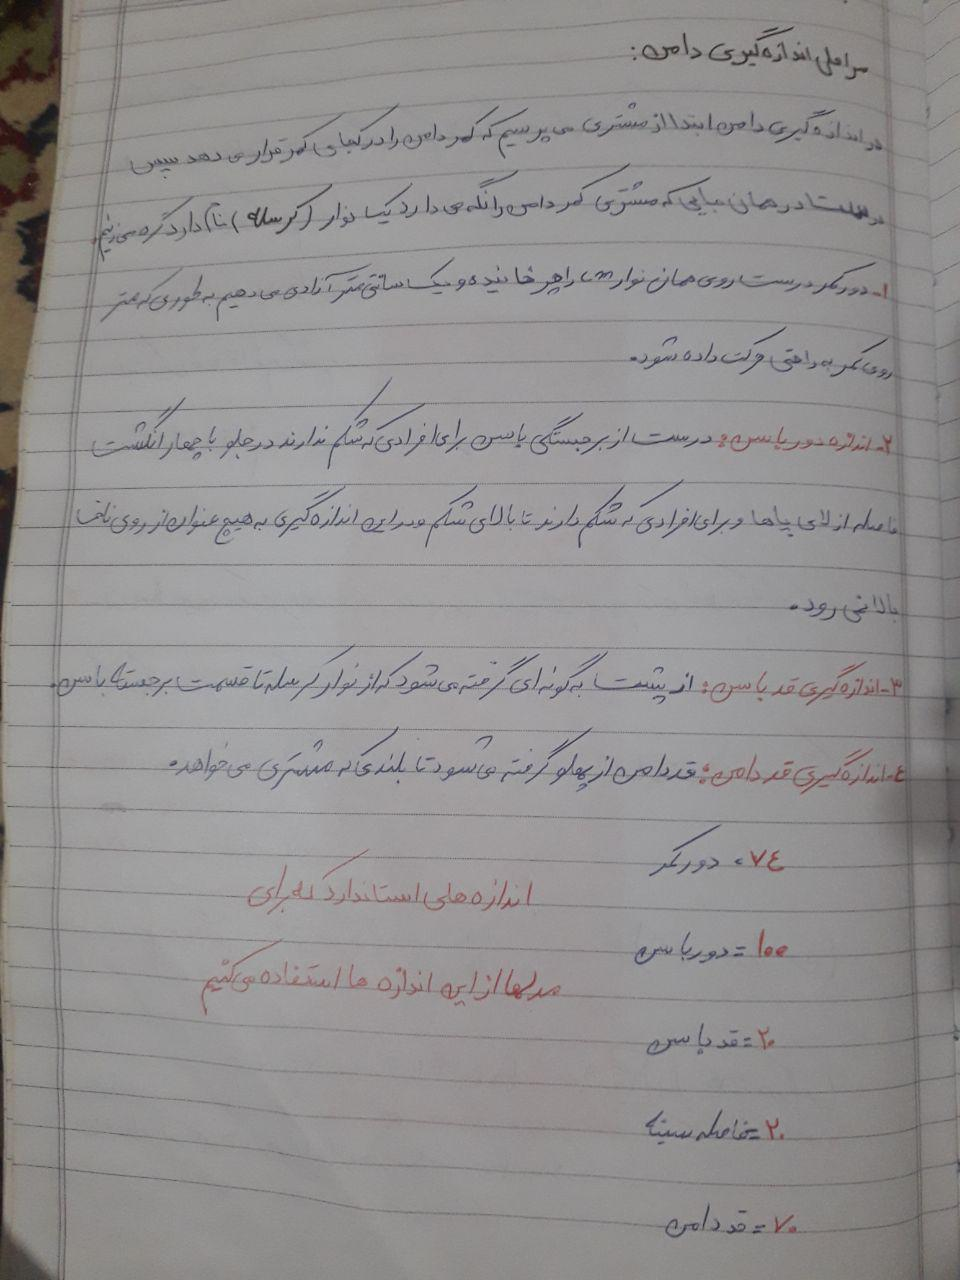 مراحل اندازه‌گیری دامن:
در اندازه‌گیری دامن ابتدا از مشتری می پرسیم که کمر دامن را در کجای کمر قرار می دهد سپس
درست در همان جایی که مشتری کمر دامن را نگه می دارد یک نوار (کرسله) نام دارد گره می‌زنیم.
۱- دور کمر درست روی همان نوار cm را چرخانیده و یک سانتی متر آزادی می دهیم به طوری که متر
روی کمر به راحتی حرکت داده شود.
۲- اندازه دور باسن: درست از برجستگی باسن برای افرادی که شکم ندارند در جلو با چهار انگشت
فاصله از لای پاها و برای افرادی که شکم دارند تا بالای شکم و در این اندازه گیری به هیچ عنوان از روی ناف
بالا نمی رود.
۳- اندازه‌گیری قد باسن: از پشت به گونه ای گرفته می شود که از نوار کرسله تا قسمت برجسته باسن.
٤- اندازه‌گیری قد دامن: قد دامن از پهلو گرفته می شود تا بلندی که مشتری می خواهد.
۷٤ = دور کمر
اندازه های استاندارد که برای
۱۰۰ = دور باسن
مدلها از این اندازه ها استفاده می کنیم
۲۰ = قد باسن
۲۰ = فاصله سینه
۷۰ = قد دامن